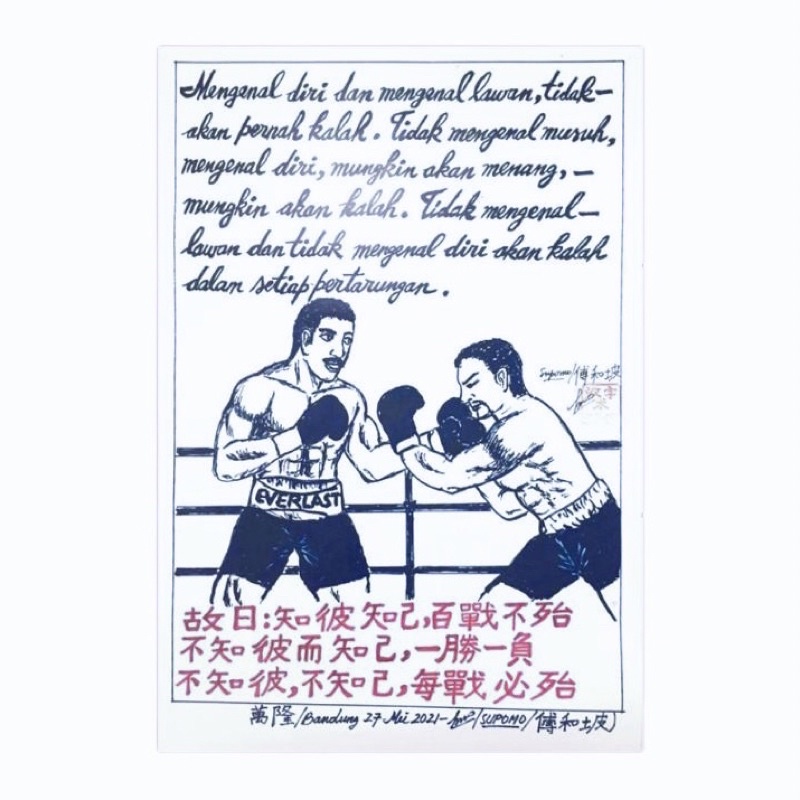 Mengenal diri dan mengenal lawan, tidak-
akan pernah kalah. Tidak mengenal musuh,
mengenal diri, mungkin akan menang, -
mungkin akan kalah. Tidak mengenal-
lawan dan tidak mengenal diri akan kalah
dalan setiap pertarungan.
Supomo/傅和坡
EVERLAST
故曰:知彼知己,百戰不殆
不知彼而知己,一勝一負
不知彼,不知己,每戰必殆
萬隆/Bandung 27 Mei 2021- /(SUPOMO/傅和坡)